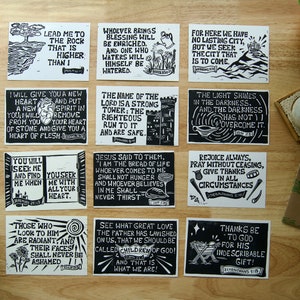 LEAD ME TO
THE ROCK
THAT IS
HIGHER
THAN I
WHOEVER BRINGS
BLESSING WILL
BE ENRICHED,
AND ONE WHO
WATERS WILL
HIMSELF BE
WATERED.
FOR HERE WE HAVE
NO LASTING CITY,
BUT WE SEEK
THE CITY THAT
IS TO COME
I WILL GIVE YOU A NEW
HEART AND PUT
A NEW SPIRIT IN
YOU; I WILL REMOVE
FROM YOU YOUR HEART
OF STONE AND GIVE YOU A
HEART OF FLESH
THE NAME OF THE
LORD IS A STRONG
TOWER; THE
RIGHTEOUS
RUN TO IT
AND ARE SAFE.
THE LIGHT SHINES
IN THE DARKNESS,
AND THE DARKNESS
HAS NOT
OVERCOME IT.
YOU WILL
SEEK ME
AND FIND
ME WHEN
YOU SEEK
ME WITH
ALL YOUR
HEART.
JESUS SAID TO THEM,
"I AM THE BREAD OF LIFE
WHOEVER COMES TO ME
SHALL NOT HUNGER
AND WHOEVER BELIEVES
IN ME SHALL
NEVER THIRST"
REJOICE ALWAYS,
PRAY WITHOUT CEASING,
GIVE THANKS
IN ALL
CIRCUMSTANCES
THOSE WHO
LOOK TO HIM
ARE RADIANT, AND
THEIR FACES
SHALL NEVER BE
ASHAMED
SEE WHAT GREAT LOVE
THE FATHER HAS LAVISHED
ON US, THAT WE SHOULD
BE CALLED
CHILDREN OF GOD!
AND THAT IS
WHAT WE ARE!
THANKS BE
TO GOD
FOR HIS
INDESCRIBABLE
GIFT!